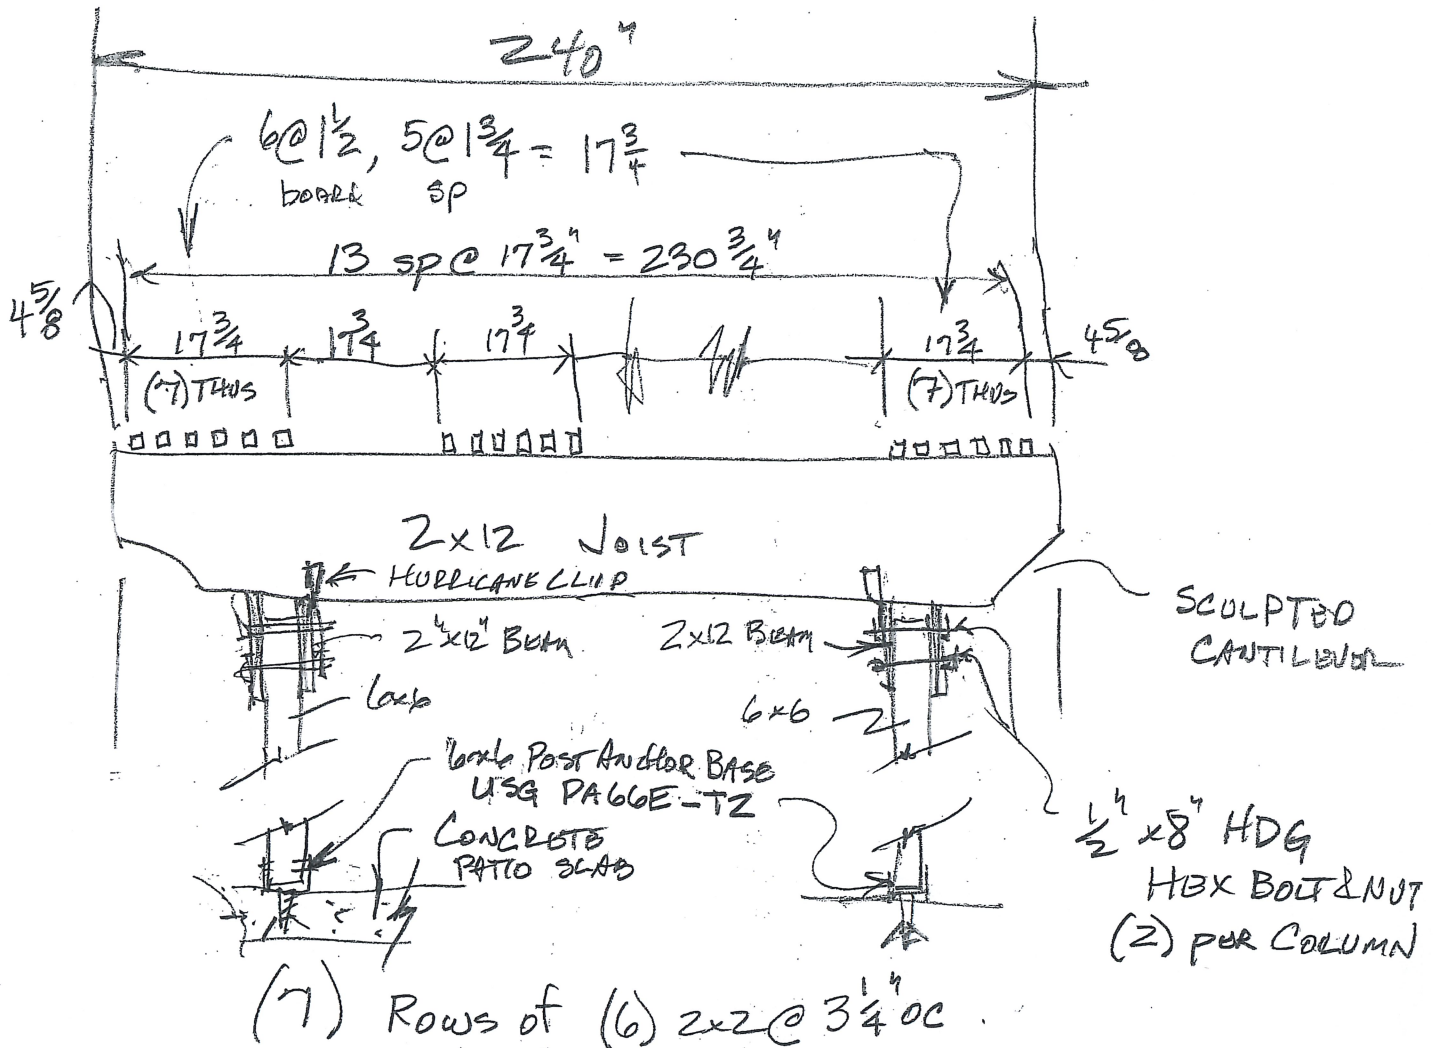 240"
6@1½, 5@1¾ = 17¾
BOARD SP
13 SP@ 17¾" = 230¾"
4⅝
17¾
17¾
17¾
17¾
4⅝
(7) THUS
(7) THUS
2x12 JOIST
HURRICANE CLIP
2"x12" BEAM
2x12 BEAM
SCULPTED
CANTILEVER
6x6
6x6
6x6 POST ANCHOR BASE
USG PA66E-TZ
CONCRETE
PATIO SLAB
½" x8" HDG
HEX BOLT & NUT
(2) PER COLUMN
(7) ROWS of (6) 2x2@ 3¼" OC.